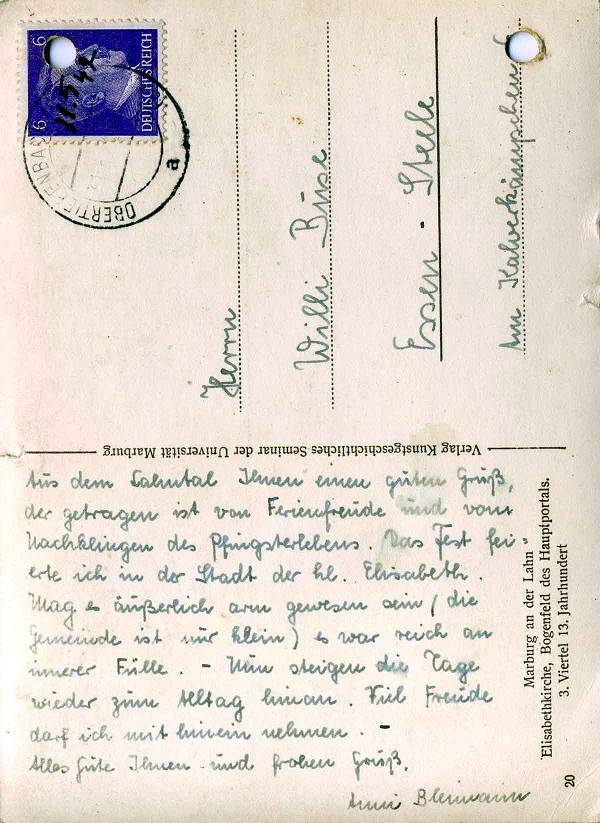 6
6
DEUTSCHES REICH
OBERTIEFENBA
a
Herrn
Willi Büse
Essen - Steele
Am Kalverkämpchen
Verlag Kunstgeschichtliches Seminar der Universität Marburg
Aus dem Lahntal Ihnen einen guten Gruß,
der getragen ist von Ferienfreude und vom
Nachklingen des Pfingsterlebens. Das Fest fei-
erte ich in der Stadt der hl. Elisabeth.
Mag es äußerlich arm gewesen sein (die
Gemeinde ist nur klein) es war reich an
innerer Fülle. - Nun steigen die Tage
wieder zum Alltag hinan. Viel Freude
darf ich mit hinein nehmen. -
Alles Gute Ihnen und frohen Gruß.
Anni
Marburg an der Lahn
Elisabethkirche, Bogenfeld des Hauptportals.
3. Viertel 13. Jahrhundert
20